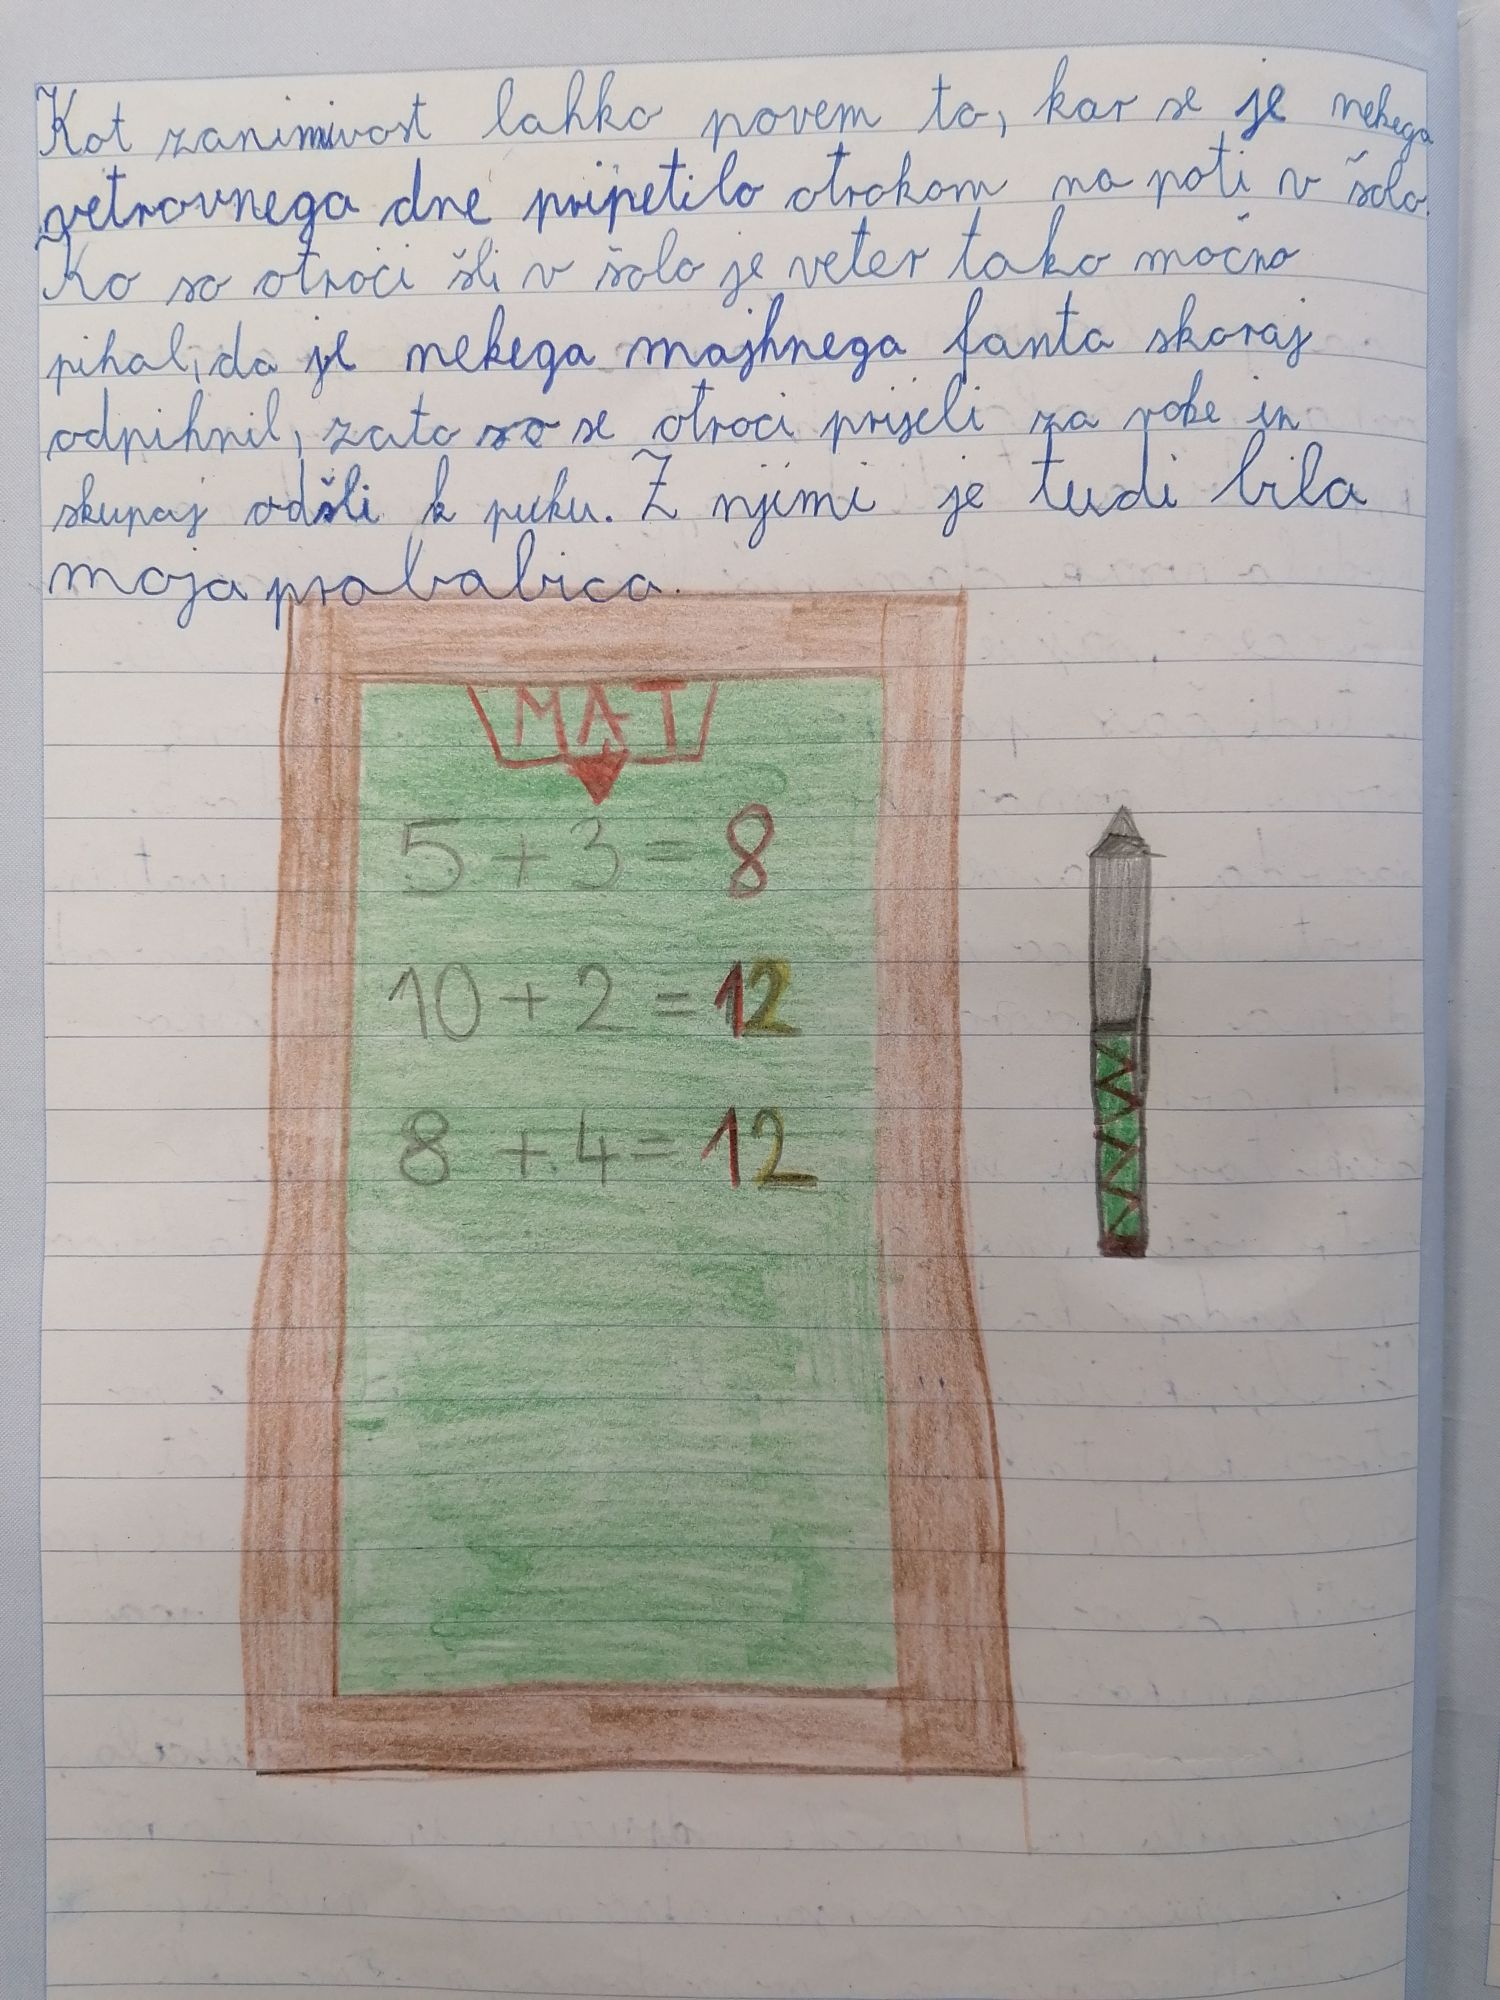 Kot zanimivost lahko povem to, kar se je nekega
vetrovnega dne pripetilo otrokom na poti v šolo.
Ko so otroci šli v šolo je veter tako močno
pihal, da je nekega majhnega fanta skoraj
odpihnil, zato so se otroci prijeli za roke in
skupaj odšli k puku. Z njimi je tudi bila
moja prababica.
MAT
5 + 3 = 8
10 + 2 = 12
8 + 4 = 12